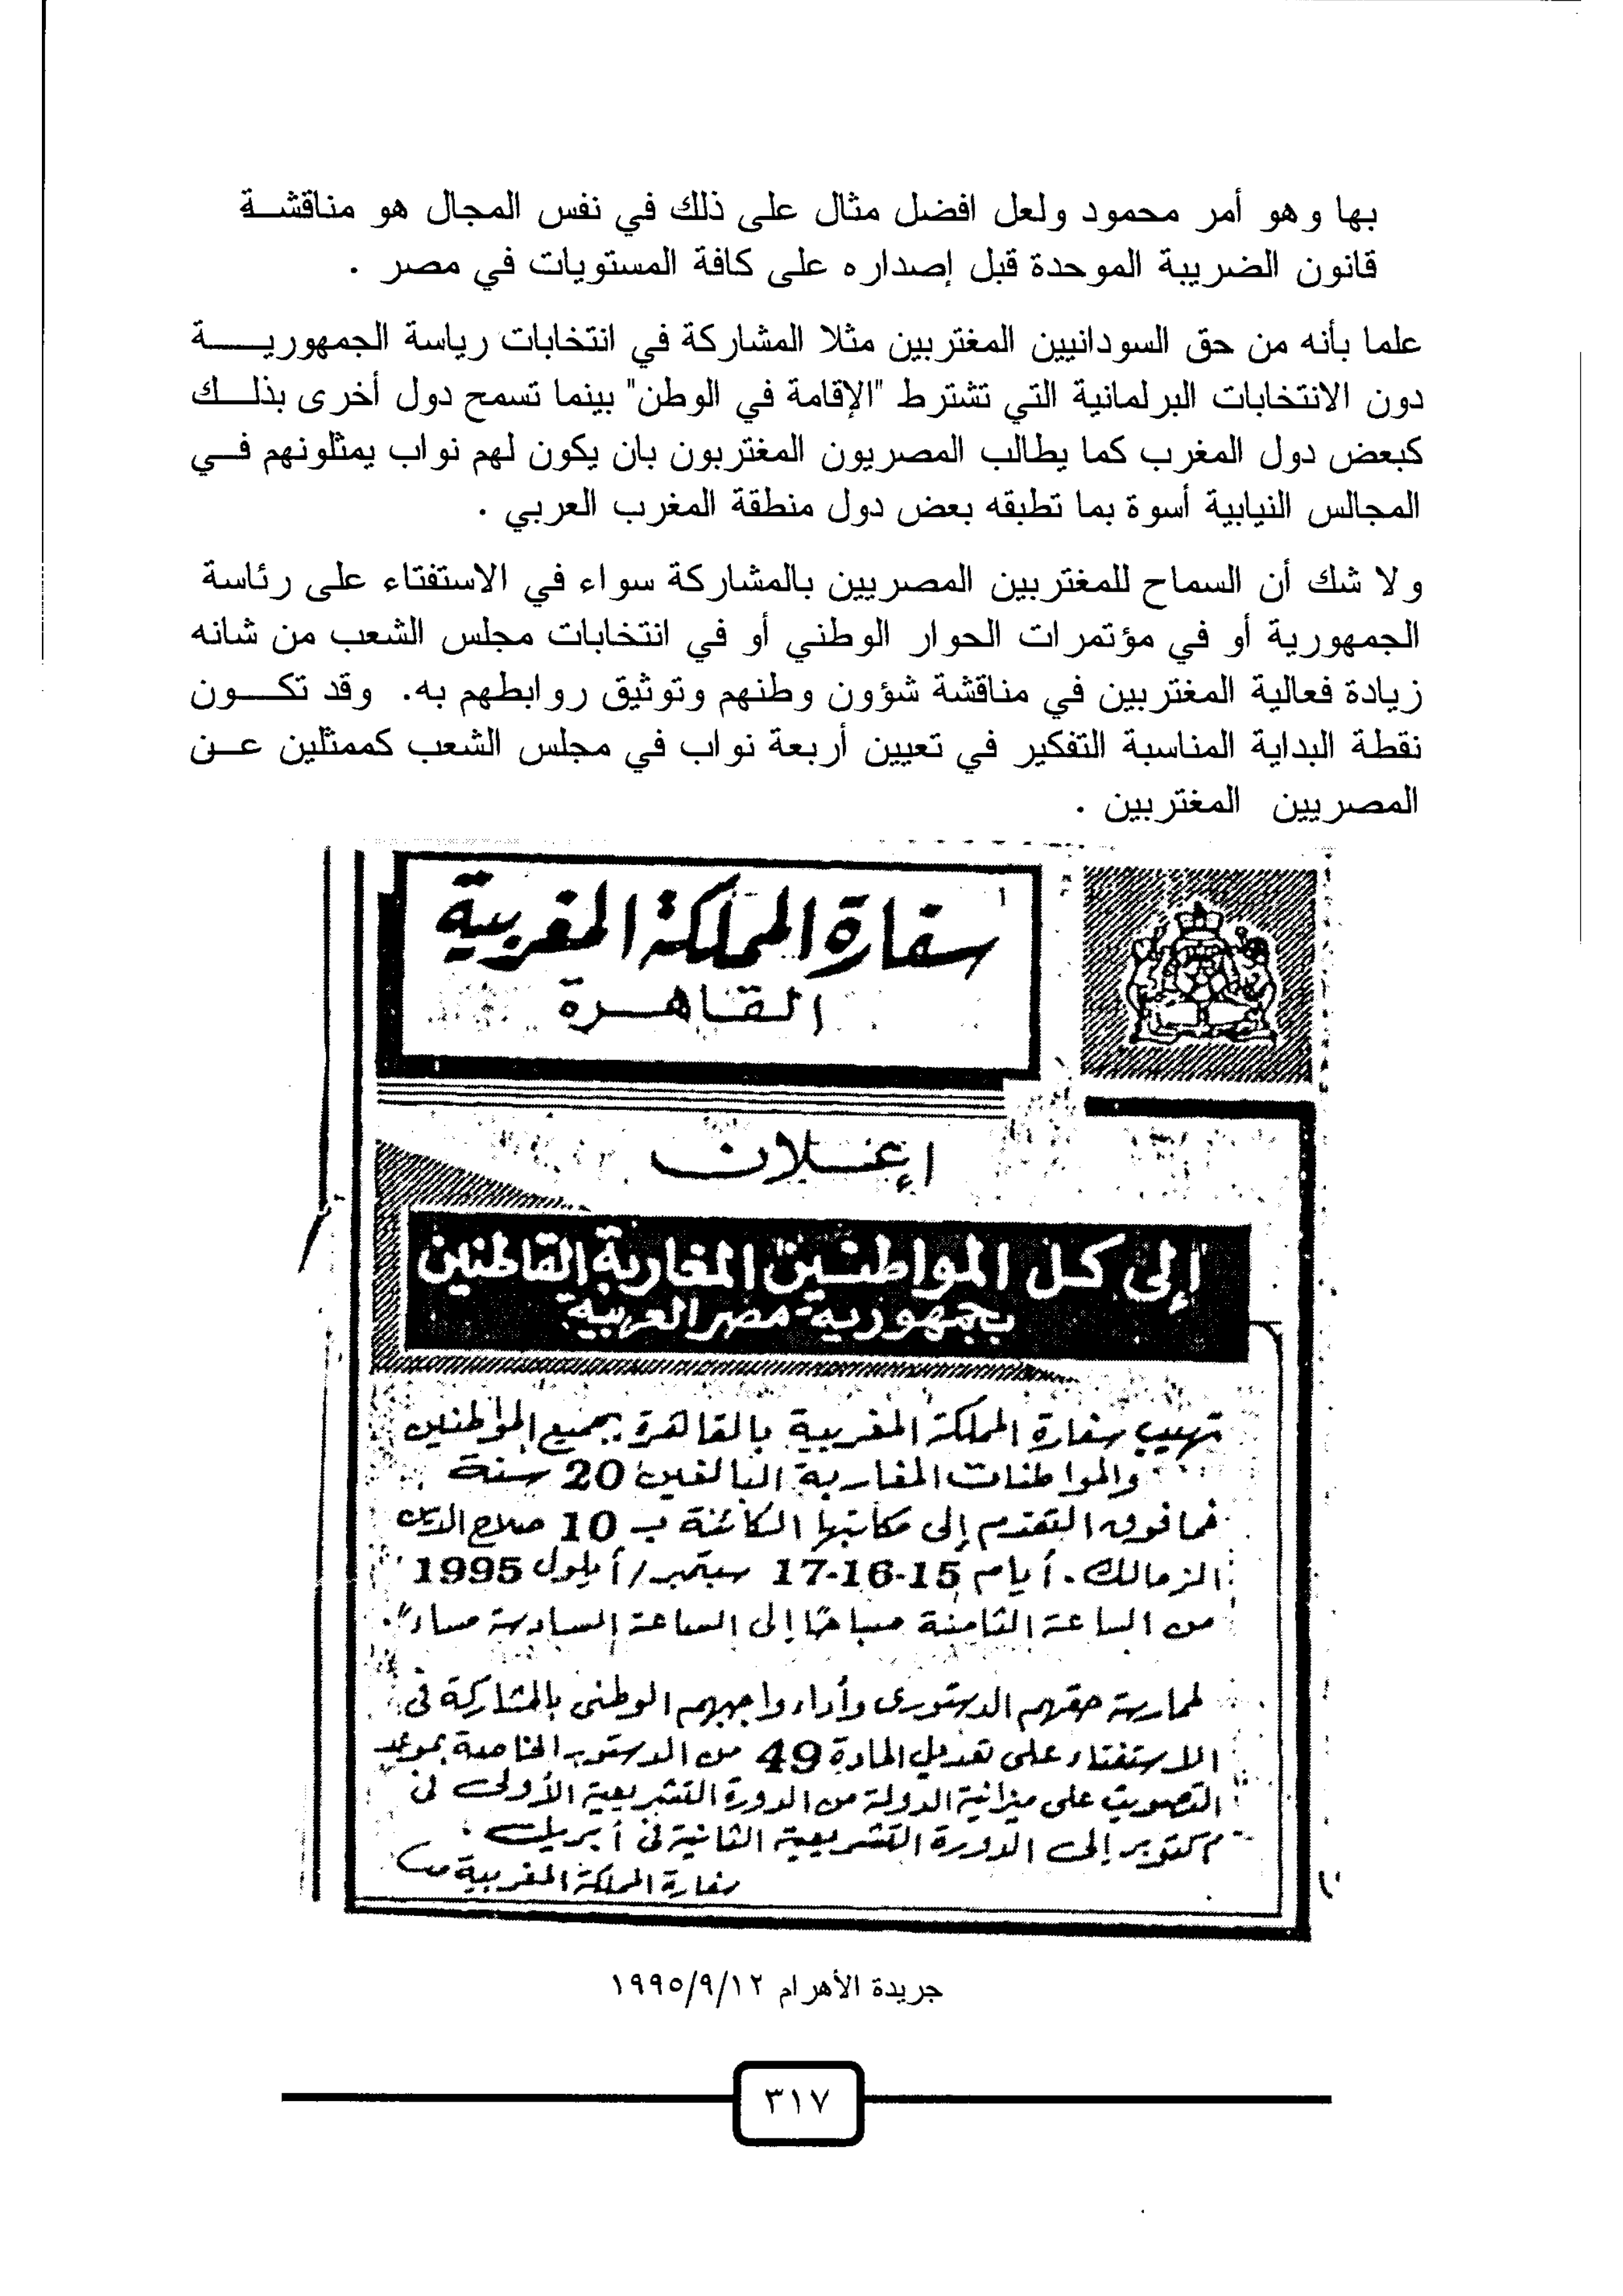 بها وهو أمر محمود ولعل افضل مثال على ذلك في نفس المجال هو مناقشة
قانون الضريبة الموحدة قبل إصداره على كافة المستويات في مصر .
علما بأنه من حق السودانيين المغتربين مثلا المشاركة في انتخابات رياسة الجمهورية
دون الانتخابات البرلمانية التي تشترط "الإقامة في الوطن" بينما تسمح دول أخرى بذلك
كبعض دول المغرب كما يطالب المصريون المغتربون بان يكون لهم نواب يمثلونهم في
المجالس النيابية أسوة بما تطبقه بعض دول منطقة المغرب العربي .
ولا شك أن السماح للمغتربين المصريين بالمشاركة سواء في الاستفتاء على رئاسة
الجمهورية أو في مؤتمرات الحوار الوطني أو في انتخابات مجلس الشعب من شانه
زيادة فعالية المغتربين في مناقشة شؤون وطنهم وتوثيق روابطهم به. وقد تكون
نقطة البداية المناسبة التفكير في تعيين أربعة نواب في مجلس الشعب كممثلين عن
المصريين المغتربين .
سفارة المملكة المغربية
القاهرة
إعلان
إلى كل المواطنين المغاربة القاطنين
بجمهورية مصر العربية
تهيب سفارة المملكة المغربية بالقاهرة بجميع المواطنين
والمواطنات المغاربة البالغين 20 سنة
فما فوق التقدم إلى مكاتبها الكائنة ب 10 صلاح الدين
الزمالك. أيام 15-16-17 سبتمبر/أيلول 1995
من الساعة الثامنة صباحًا إلى الساعة السادسة مساءً.
لممارسة حقهم الدستورى وأداء واجبهم الوطنى بالمشاركة فى
الاستفتاء على تعديل المادة 49 من الدستور الخاصة بموعد
التصويت على ميزانية الدولة من الدورة التشريعية الأولى فى
أكتوبر إلى الدورة التشريعية الثانية فى أبريل.
سفارة المملكة المغربية
جريدة الأهرام ١٩٩٥/٩/١٢
٣١٧